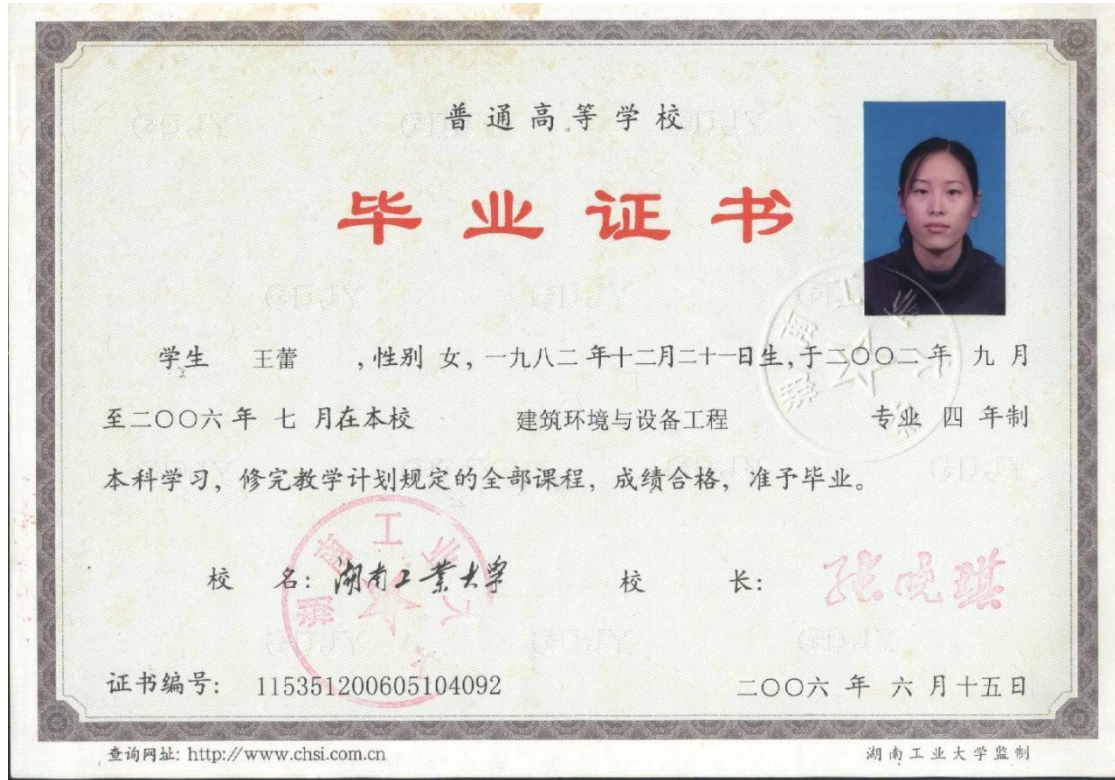 普通高等学校
毕业证书
学生 王蕾 ,性别 女,一九八二 年十二月二十一日生,于二〇〇二 年 九 月
至二〇〇六 年 七 月在本校 建筑环境与设备工程 专业 四 年制
本科学习, 修完教学计划规定的全部课程, 成绩合格, 准予毕业。
校 名: 湖南工業大学 校 长: 张晓琪
湖南工业大学
湖南工业大学
证书编号: 115351200605104092 二〇〇六 年 六 月十五日
查询网址: http://www.chsi.com.cn 湖南工业大学监制